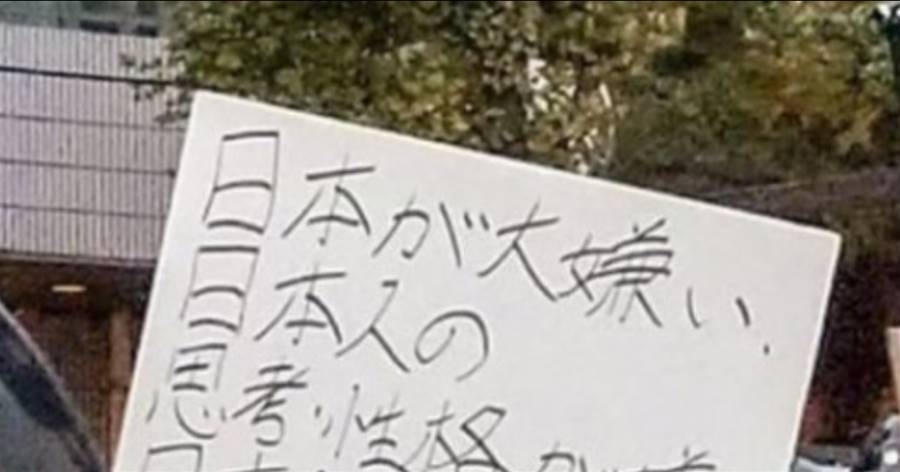 日本が大嫌い.
日本人の
思考・性格が嫌
日本